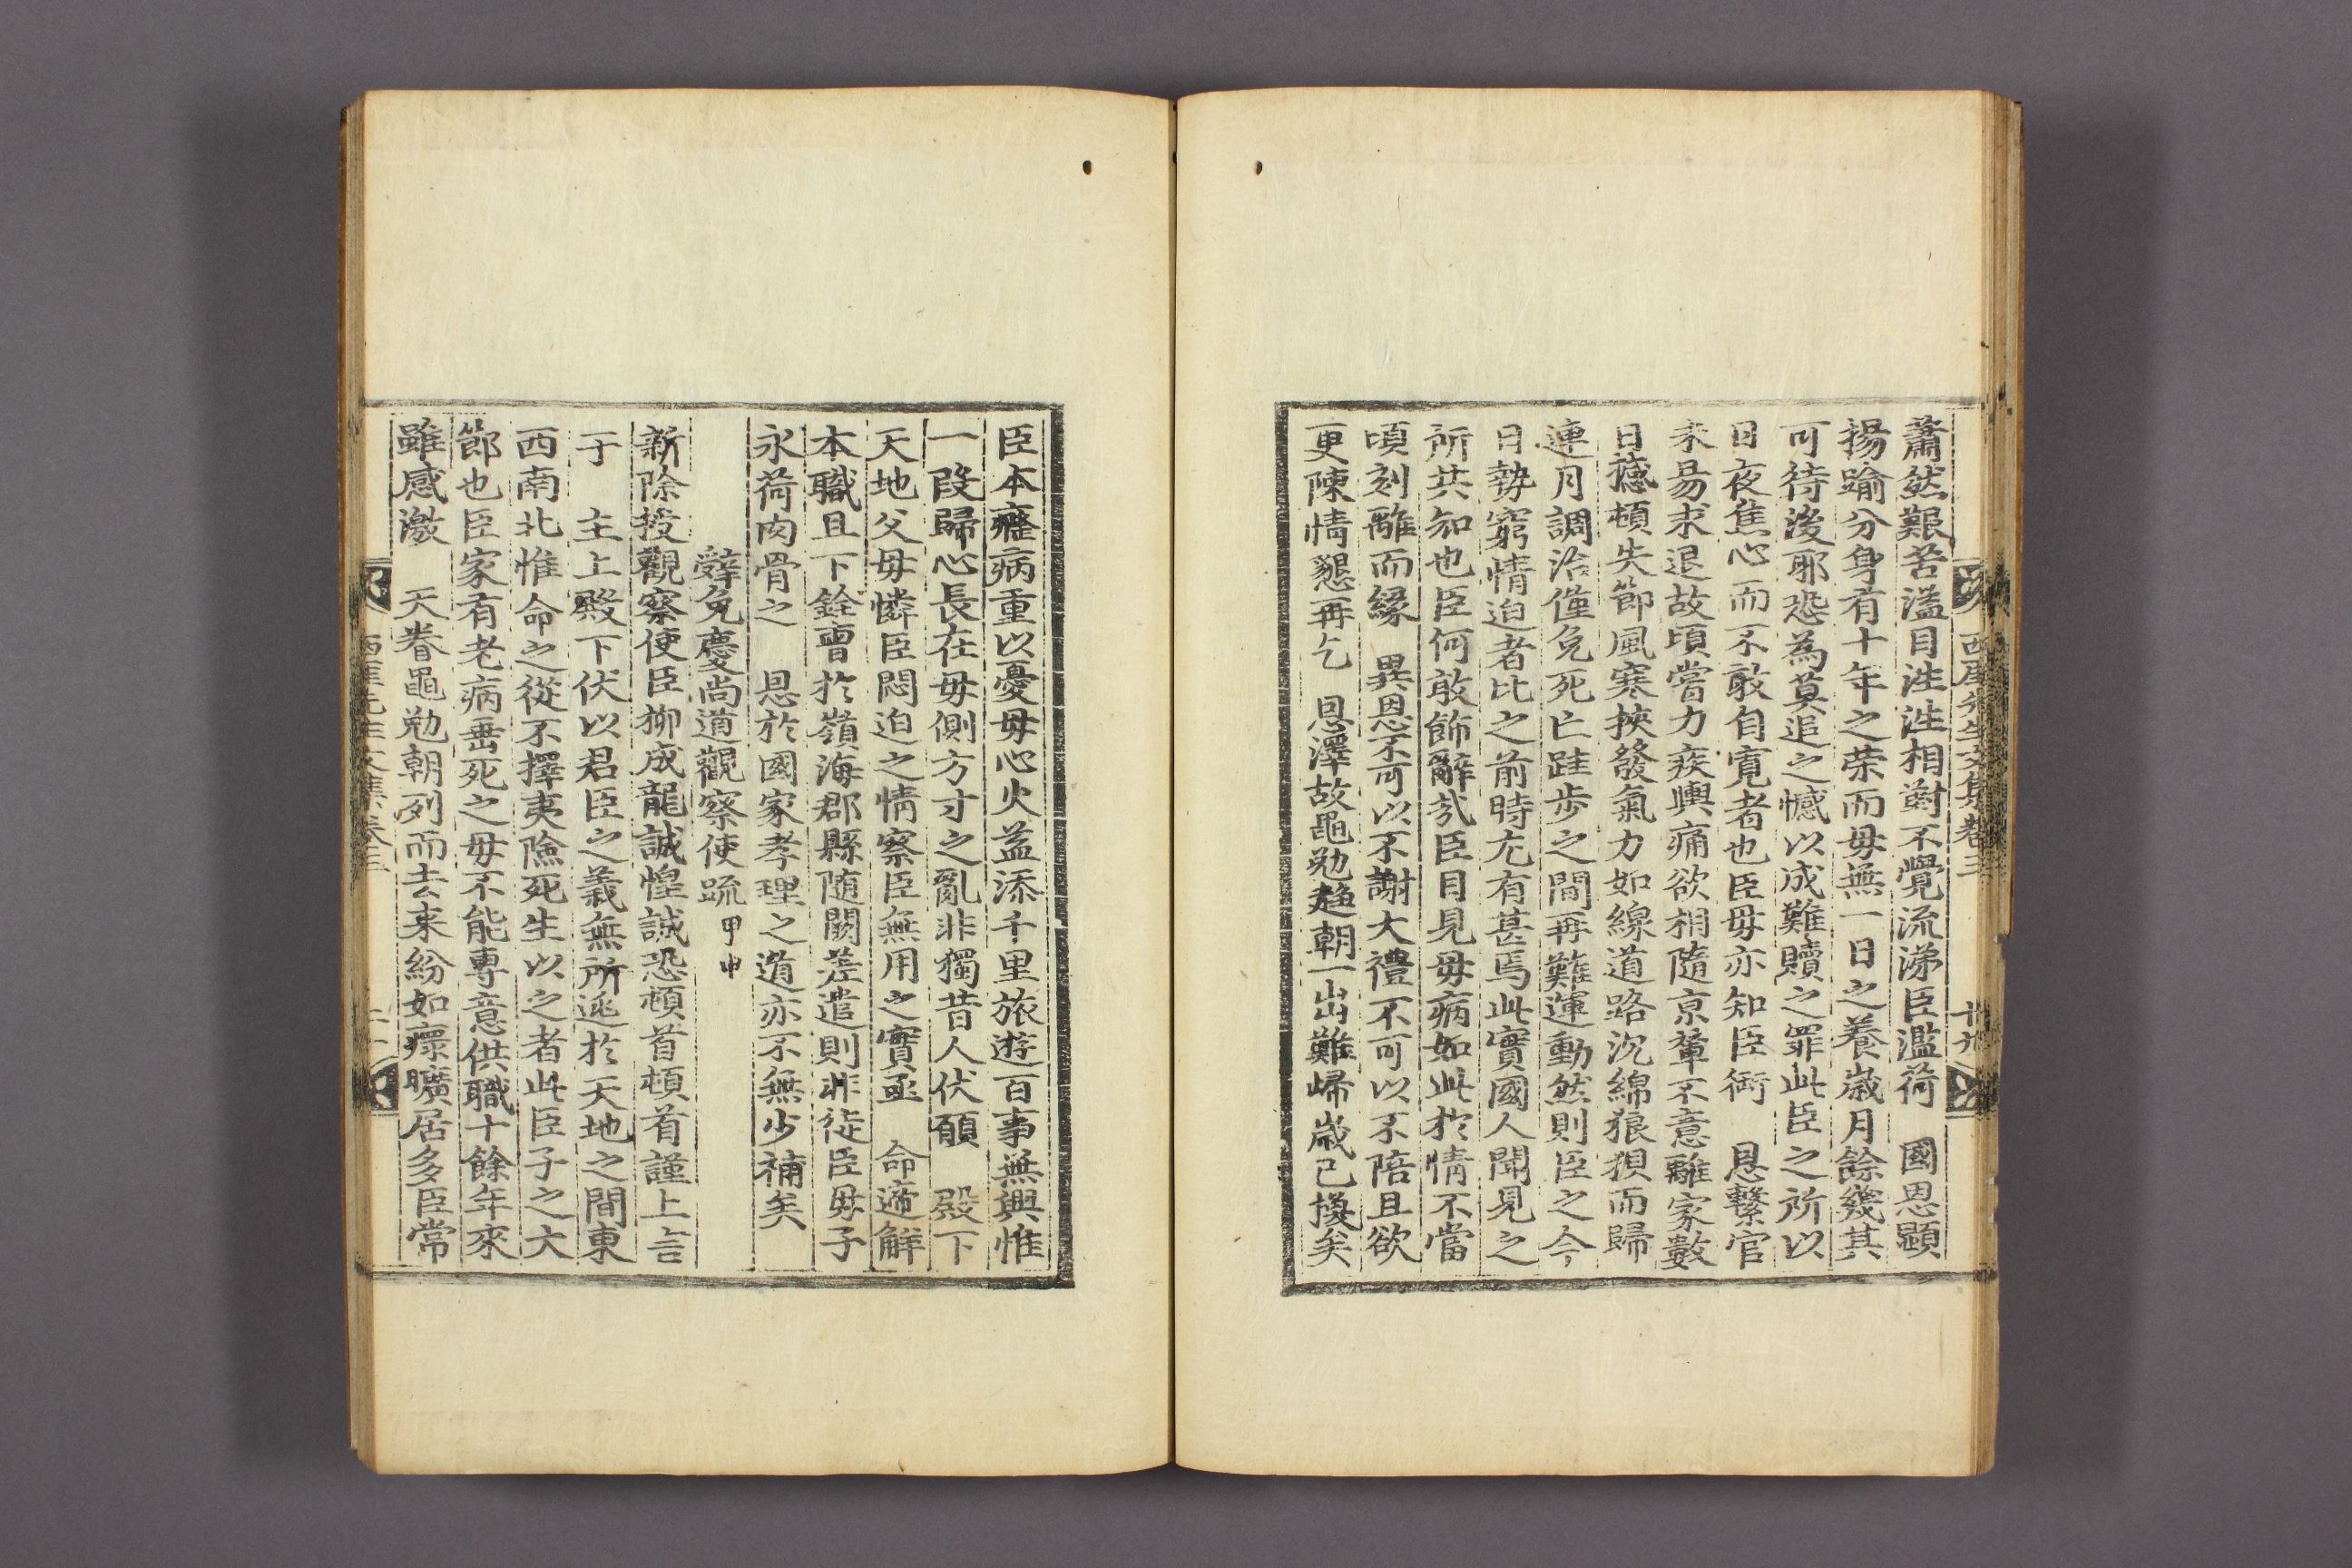 蕭然艱苦溢目泩泩相對不覺流涕臣濫荷　國恩顯
揚踰分身有十年之荣而毋無一日之養歲月餘幾其
可待後耶恐為莫追之憾以成難贖之罪此臣之所以
日夜焦心而不敢自寬者也臣毋亦知臣衔　恩繋官
未易求退故頃嘗力疾輿痛欲相隨京輦不意離家數
日撼頓失節風寒挾發氣力如線道路沉綿狼狽而歸
連月調治僅免死亡跬歩之間再難運動然則臣之今
日勢窮情迫者比之前時尤有甚焉此實國人聞見之
所共知也臣何敢飾辭㢤臣目見毋病如此於情不當
頃刻離而縁　異恩不可以不謝大禮不可以不陪且欲
更陳情懇再乞　恩澤故黽勉趍朝一出難歸歲已換矣
西厓先生文集卷三　十九
臣本癃病重以憂毋心火益添千里旅遊百事無興惟
一段歸心長在毋側方寸之亂非獨昔人伏願　殿下
天地父毋憐臣悶迫之情察臣無用之實亟　命遞解
本職且下銓曺於嶺海郡縣随闕差遣則非徒臣毋子
永荷肉骨之　恩於國家孝理之道亦不無少補矣
辭免慶尚道觀察使疏甲申
新除授觀察使臣柳成龍誠惶誠恐頓首頓首謹上言
于　主上殿下伏以君臣之義無所逃於天地之間東
西南北惟命之從不擇夷險死生以之者此臣子之大
節也臣家有老病垂死之毋不能專意供職十餘年來
雖感激　天眷黽勉朝列而去来紛如瘝曠居多臣常
西厓先生文集卷三